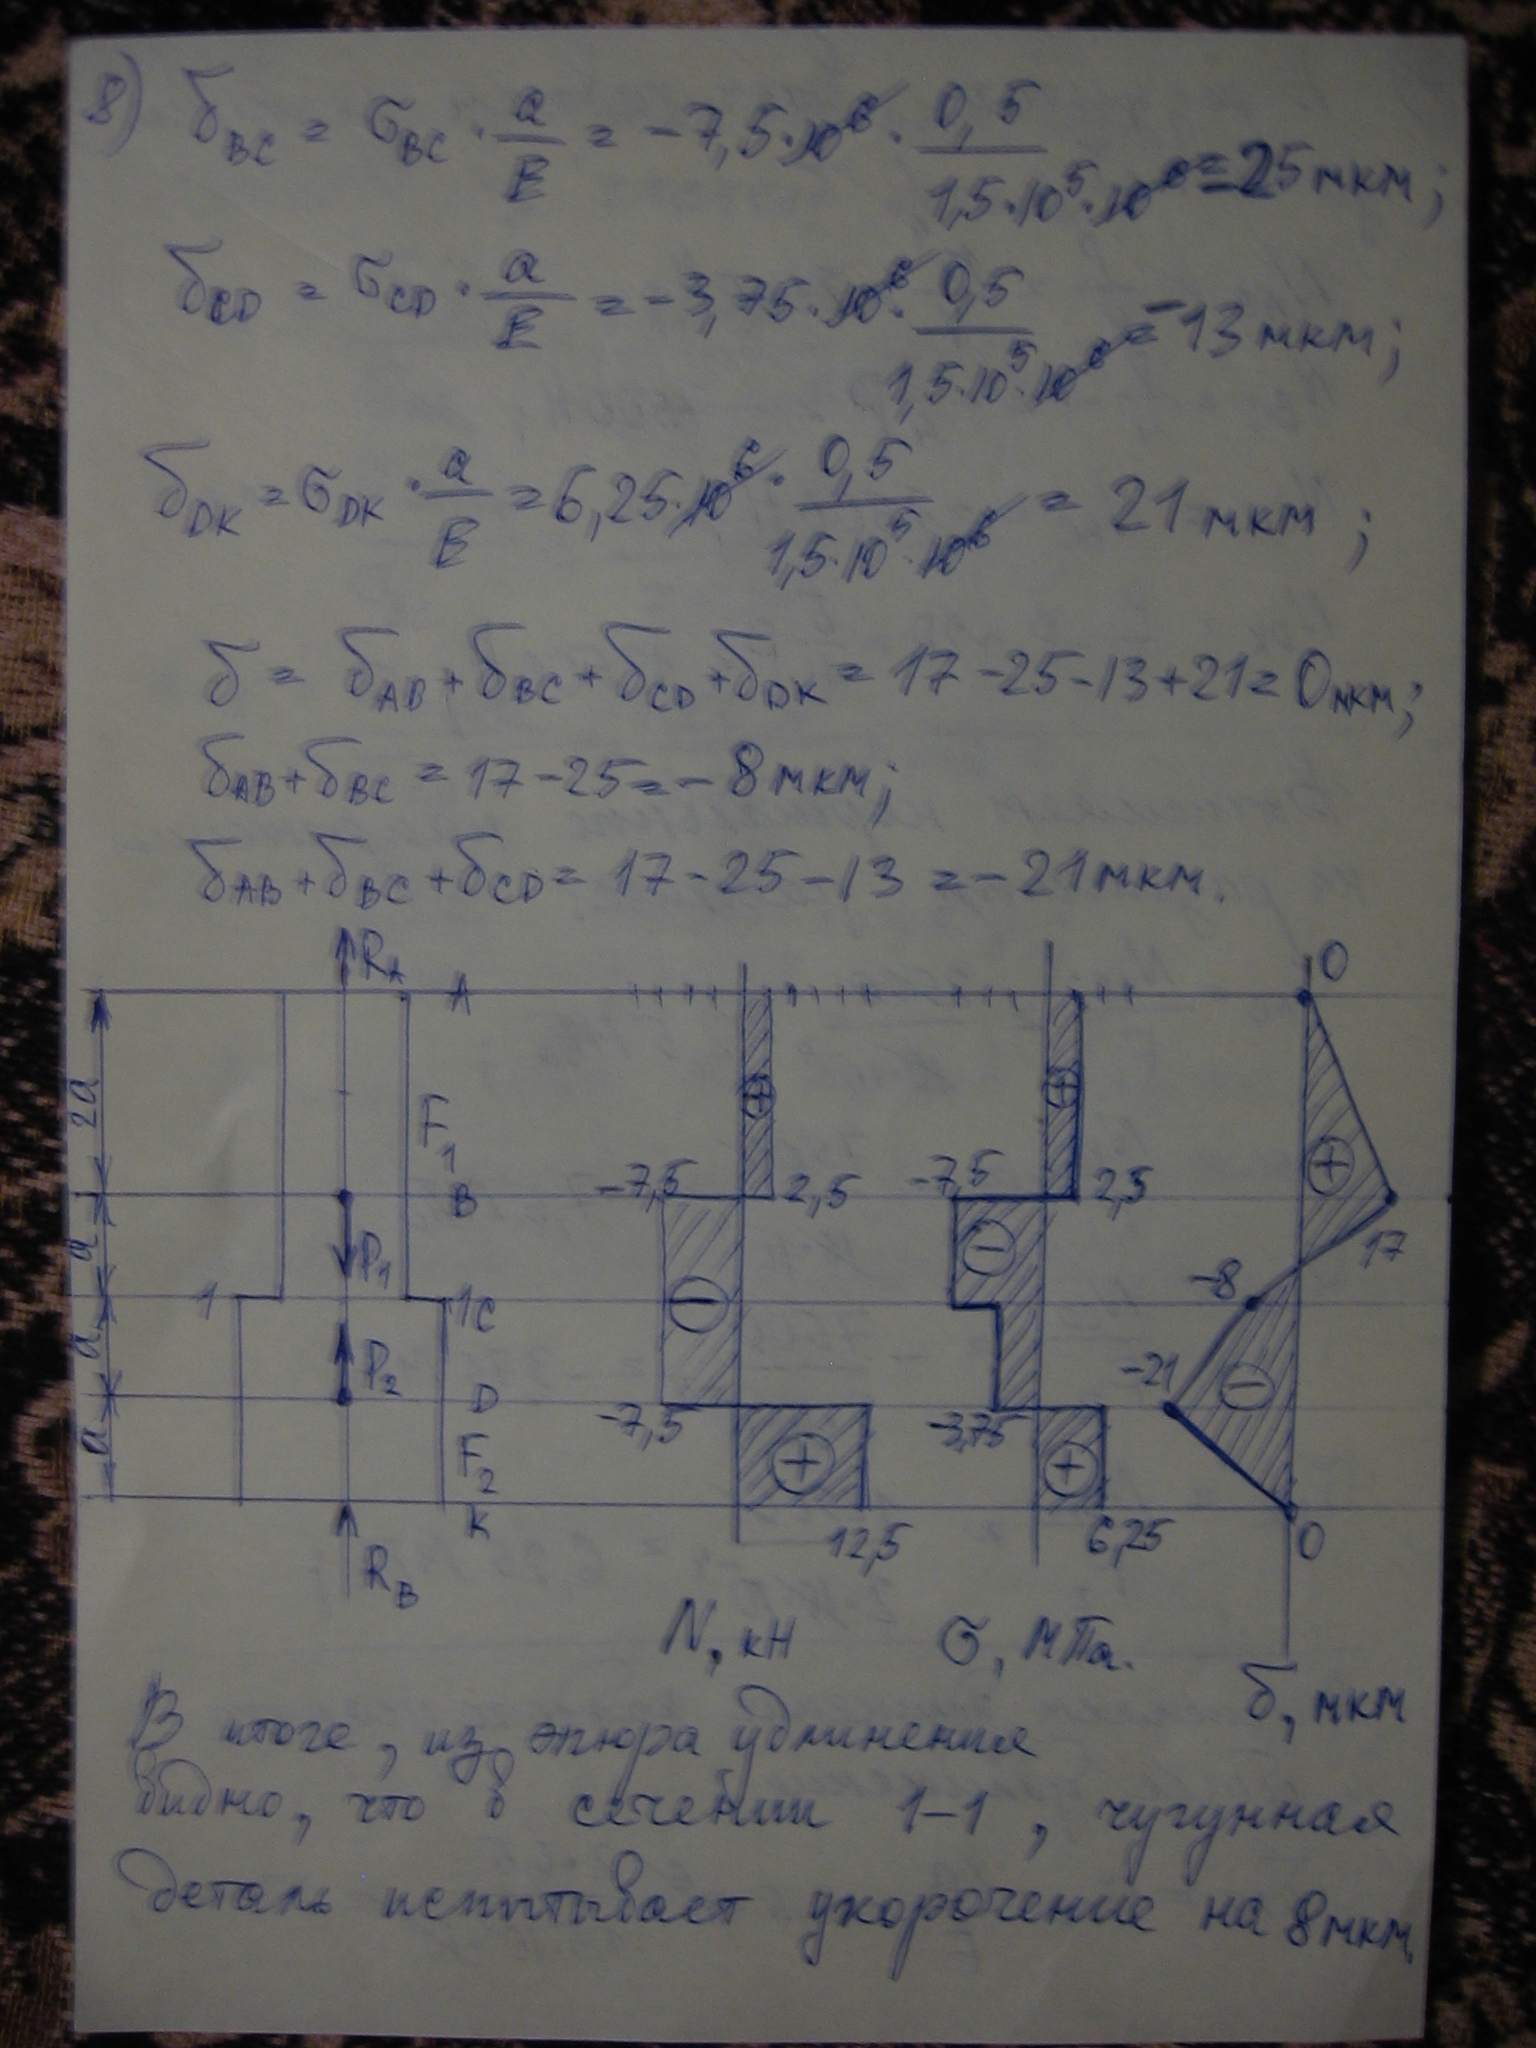 8) δBC = σBC · a/E = -7,5·10⁶ · 0,5/1,5·10⁵·10⁶ = -25 мкм;
δCD = σCD · a/E = -3,75·10⁶ · 0,5/1,5·10⁵·10⁶ = -13 мкм;
δDK = σDK · a/E = 6,25·10⁶ · 0,5/1,5·10⁵·10⁶ = 21 мкм;
δ = δAB + δBC + δCD + δDK = 17 - 25 - 13 + 21 = 0 мкм;
δAB + δBC = 17 - 25 = - 8 мкм;
δAB + δBC + δCD = 17 - 25 - 13 = - 21 мкм.
RA A 0
2a F1 + + +
B -7,5 2,5 -7,5 2,5 17
a P1 - -
1 1 C - -8
a P2 - -21
D -7,5 -3,75
a F2 + +
K 12,5 6,25 0
RB
N, кН σ, МПа. δ, мкм
В итоге, из эпюра удлинения
видно, что в сечении 1-1, чугунная
деталь испытывает укорочение на 8 мкм.